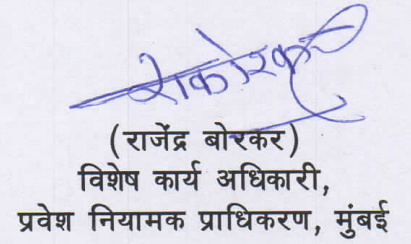 (राजेंद्र बोरकर)
विशेष कार्य अधिकारी,
प्रवेश नियामक प्राधिकरण, मुंबई